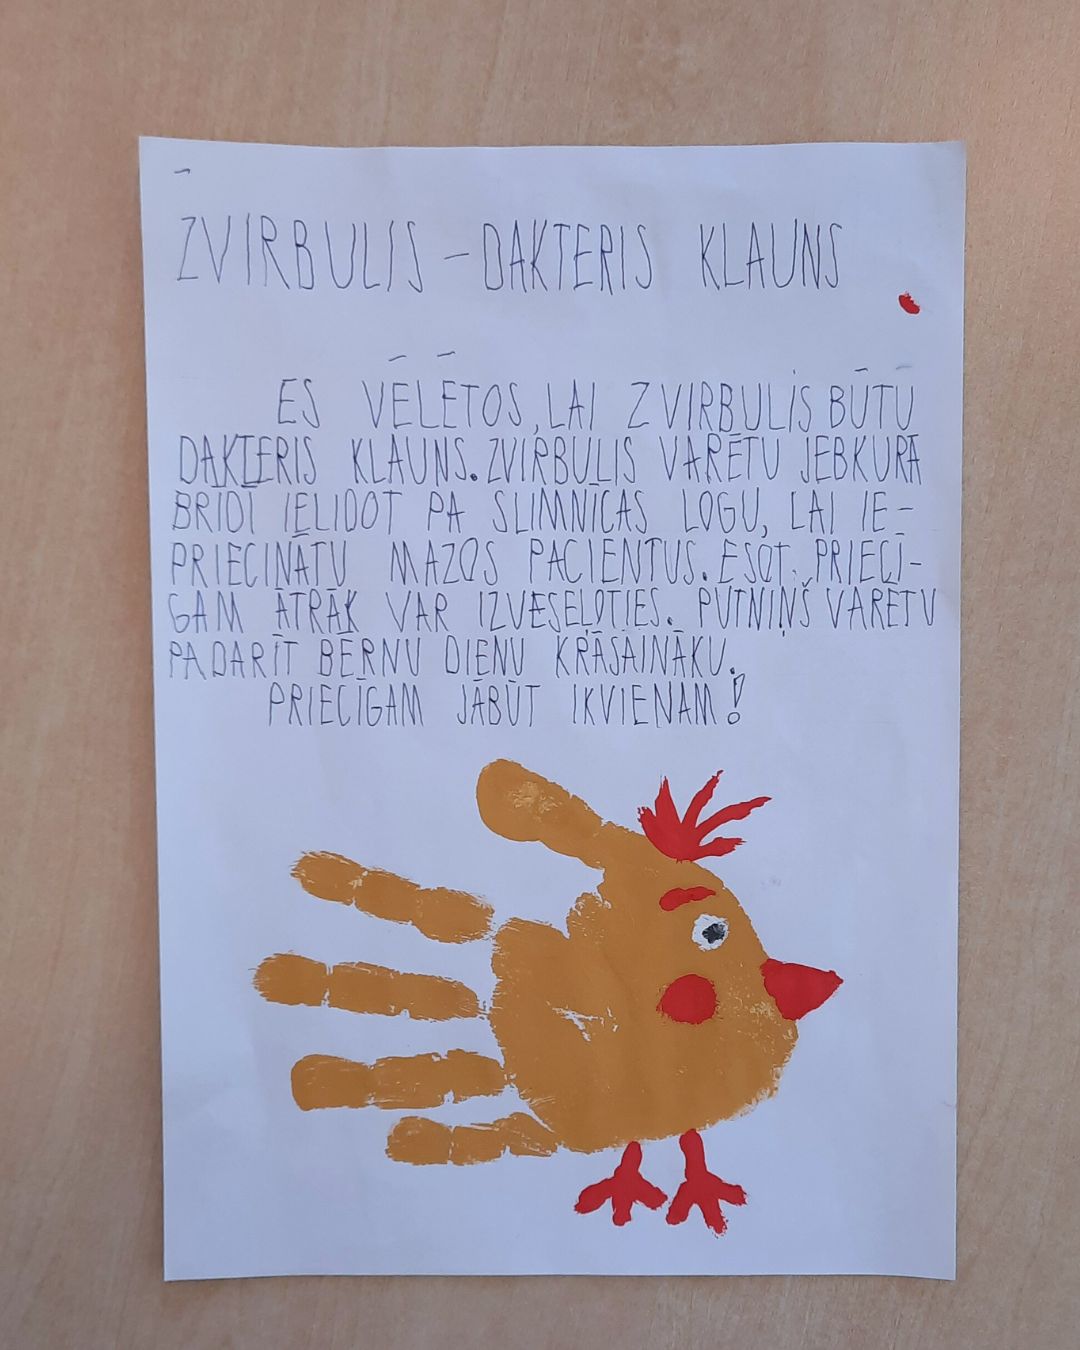 ZVIRBULIS – DAKTERIS KLAUNS
ES VĒLĒTOS, LAI ZVIRBULIS BŪTU
DAKTERIS KLAUNS. ZVIRBULIS VARĒTU JEBKURĀ
BRĪDĪ IELIDOT PA SLIMNĪCAS LOGU, LAI IE-
PRIECINĀTU MAZOS PACIENTUS. ESOT PRIECĪ-
GAM ĀTRĀK VAR IZVESEĻOTIES. PUTNIŅŠ VARĒTU
PADARĪT BĒRNU DIENU KRĀSAINĀKU.
PRIECĪGAM JĀBŪT IKVIENAM!